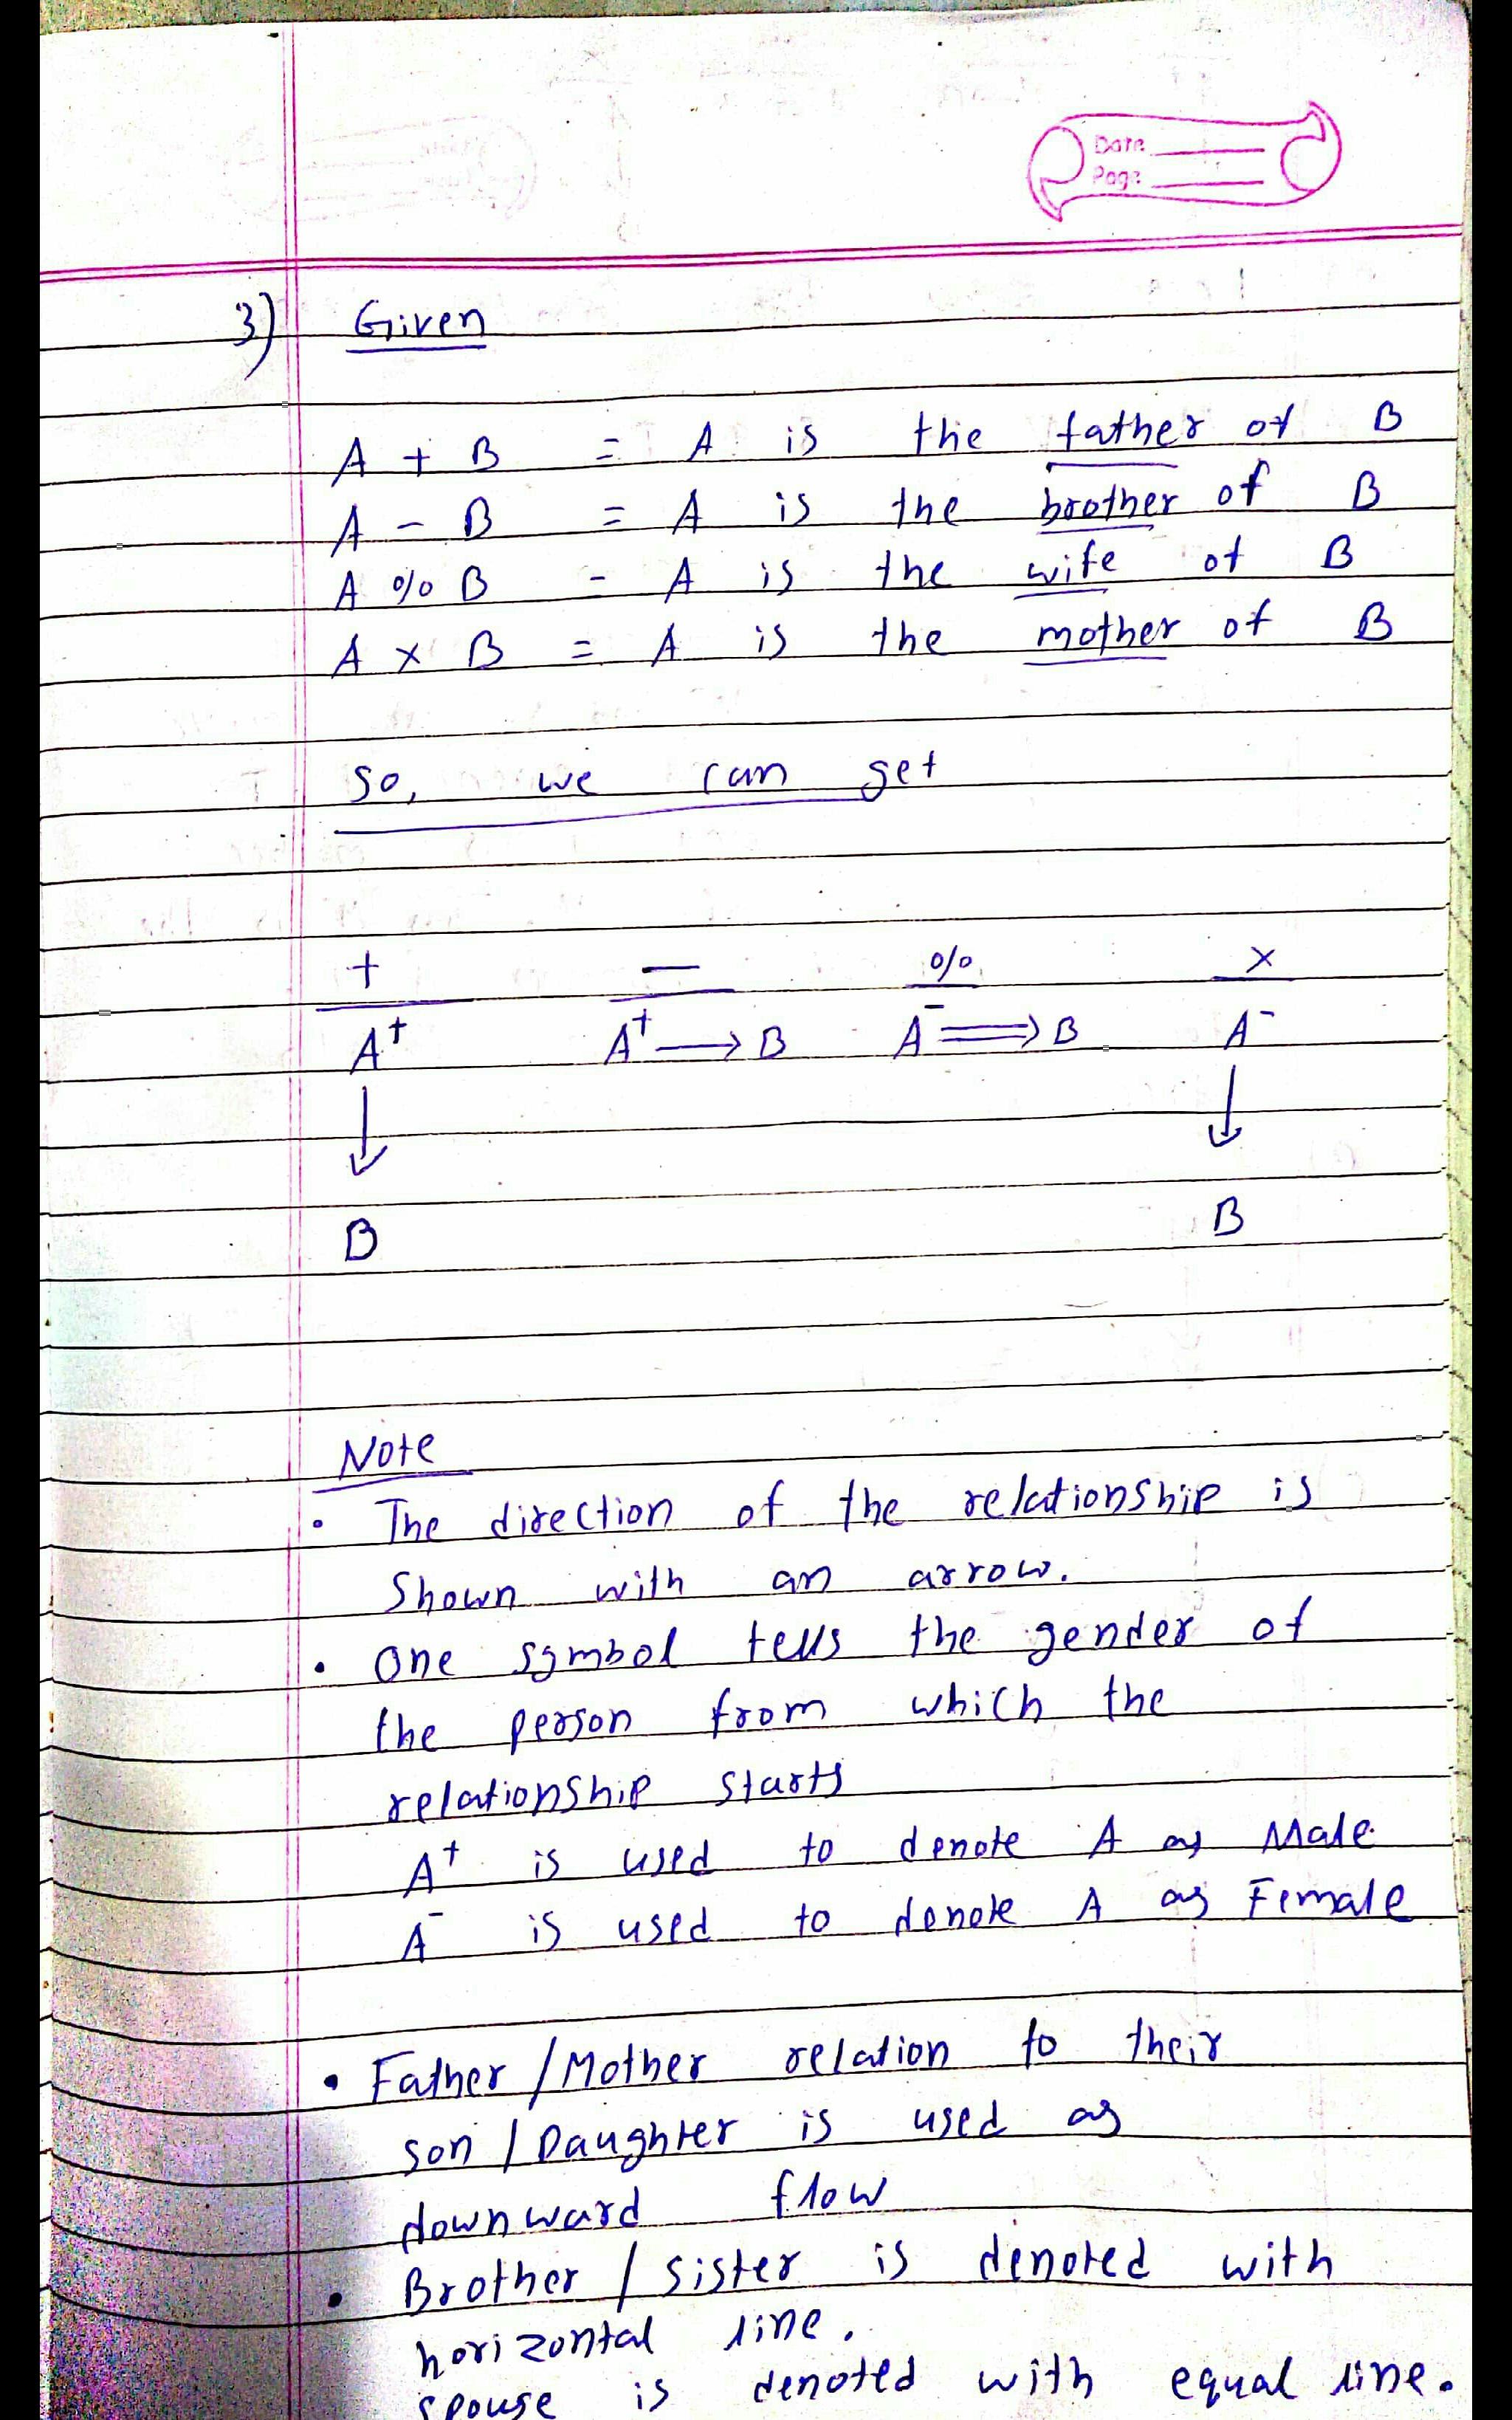 Date
Page
3) Given
A + B = A is the father of B
A - B = A is the brother of B
A % B = A is the wife of B
A × B = A is the mother of B
so, we can get
+ — % ×
A⁺ A⁺ → B A⁻ ⇒ B A⁻
↓ ↓
B B
Note
• The direction of the relationship is
shown with an arrow.
• One symbol tells the gender of
the person from which the
relationship starts
A⁺ is used to denote A as Male
A⁻ is used to denote A as Female
• Father / Mother relation to their
son / Daughter is used as
downward flow
• Brother / sister is denoted with
horizontal line.
spouse is denoted with equal line.